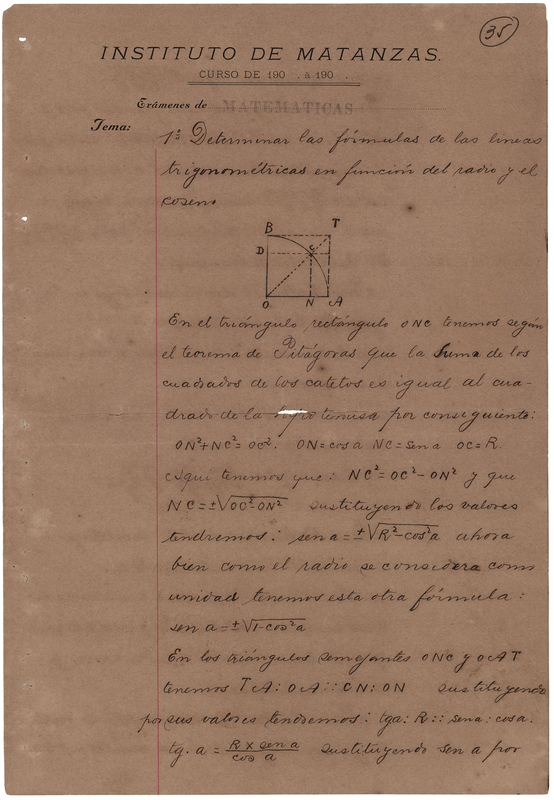 35
INSTITUTO DE MATANZAS.
CURSO DE 190 . á 190 .
Exámenes de MATEMATICAS
Tema:
1º Determinar las fórmulas de las lineas
trigonométricas en función del radio y el
coseno
B T
D C
O N A
En el triángulo rectángulo ONC tenemos según
el teorema de Pitágoras que la suma de los
cuadrados de los catetos es igual al cua-
drado de la hipotenusa por consiguiente:
ON²+NC²=OC². ON=cos a NC=sen a OC=R.
Aqui tenemos que: NC²=OC²-ON² y que
NC=±√OC²-ON² sustituyendo los valores
tendremos: sen a=±√R²-cos²a ahora
bien como el radio se considera como
unidad tenemos esta otra fórmula:
sen a=±√1-cos²a
En los triángulos semejantes ONC y OAT
tenemos TA:OA::CN:ON sustituyendo
por sus valores tendremos: tga: R:: sena: cosa.
tg. a = R x sen a / cos a sustituyendo sen a por